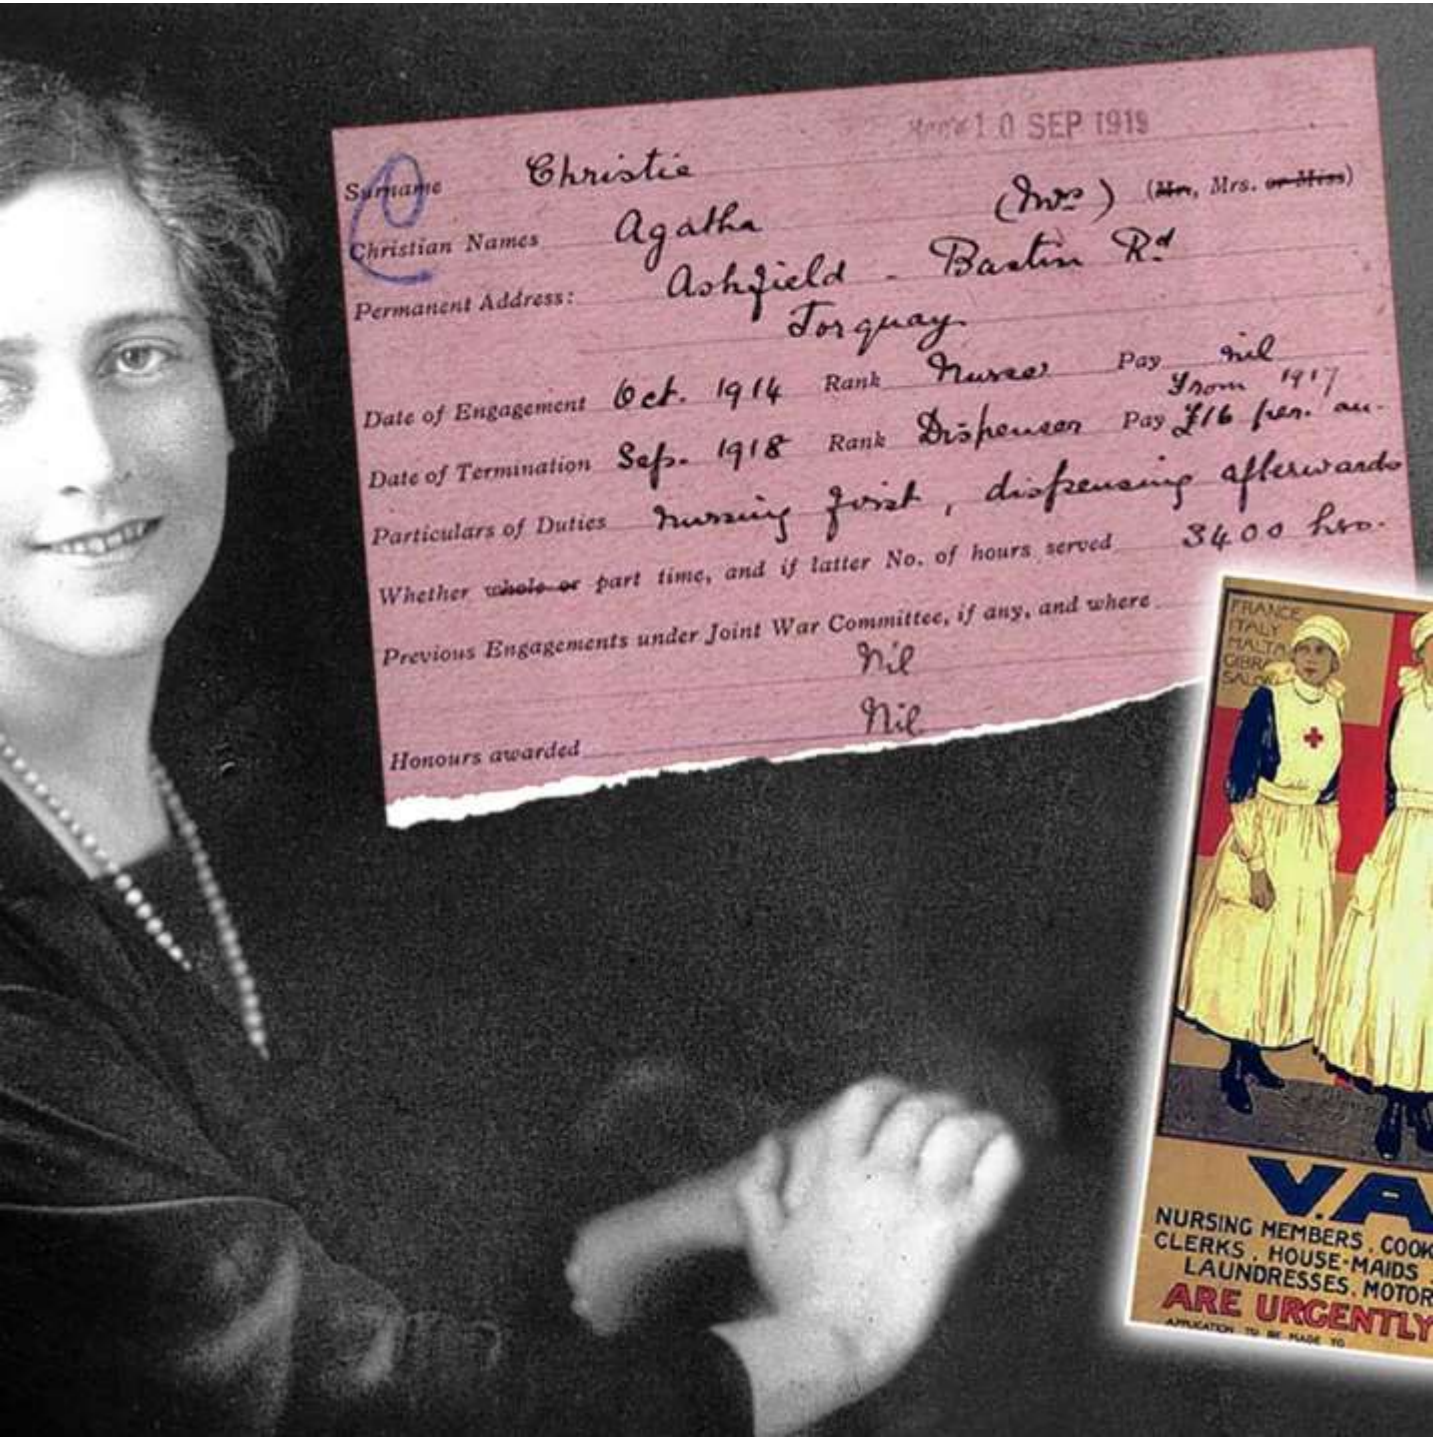 10 SEP 1919
Surname Christie
Christian Names Agatha (Mrs) (Mr, Mrs. or Miss)
Permanent Address: Ashfield - Bartin Rd
Torquay
Date of Engagement Oct. 1914 Rank Nurse Pay nil
From 1917
Date of Termination Sep. 1918 Rank Dispenser Pay £16 per. an.
Particulars of Duties Nursing first, dispensing afterwards
Whether whole or part time, and if latter No. of hours served 3400 hrs.
Previous Engagements under Joint War Committee, if any, and where
Nil
Honours awarded Nil
FRANCE
ITALY
MALTA
GIBRA
SALO
V.A
NURSING MEMBERS. COOK
CLERKS. HOUSE-MAIDS
LAUNDRESSES. MOTOR
ARE URGENTLY
APPLICATION TO BE MADE TO